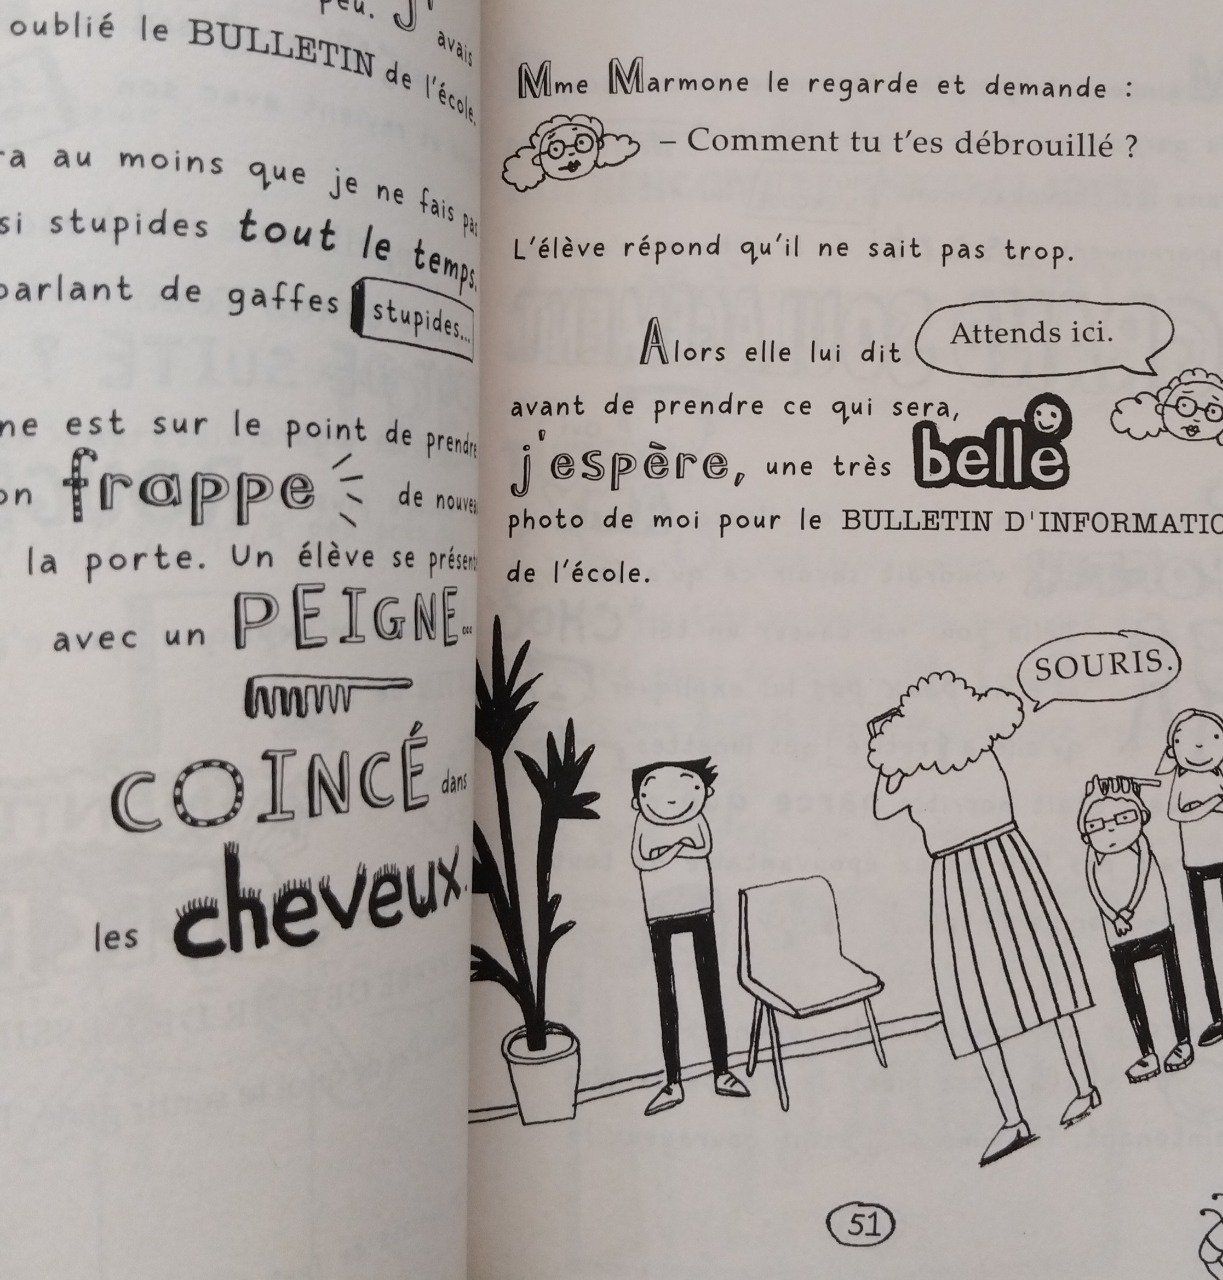 peu. J'avais
oublié le BULLETIN de l'école.
au moins que je ne fais pas
si stupides tout le temps.
parlant de gaffes stupides...
est sur le point de prendre
frappe de nouveau
la porte. Un élève se présente
avec un PEIGNE...
COINCÉ dans
les cheveux.
Mme Marmone le regarde et demande :
– Comment tu t'es débrouillé ?
L'élève répond qu'il ne sait pas trop.
Alors elle lui dit Attends ici.
avant de prendre ce qui sera,
j'espère, une très belle
photo de moi pour le BULLETIN D'INFORMATIO
de l'école.
SOURIS.
51